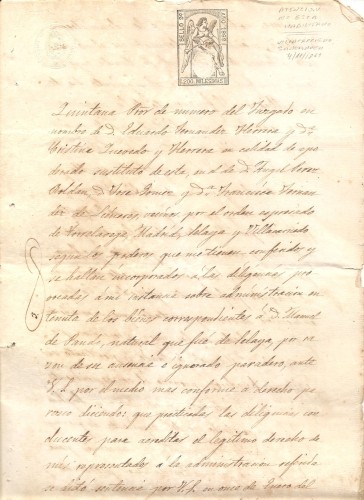 Quintana Pror de numero del Juzgado en
nombre de D. Eduardo Fernandez Herrera y Dª
Cristina Quevedo y Herrera en calidad de apo
derado sustituto de esta, en el de D. Angel Perez
Roldan, Dª Gomez, y Dª Francisca Fernan
dez de Liencres, vecinos por el orden espresado
de Torrelavega, Madrid, Selaya y Villacarriedo
segun los poderes que me tienen conferidos y
se hallan incorporados a las diligencias pro
movidas a mi instancia sobre administracion in
terina de los bienes correspondientes á D. Manuel
de Pando, natural que fue de Selaya, por ra
zon de su ausencia é ignorado paradero, ante
V.S. por el medio mas conforme a derecho pa
rezco diciendo: que practicadas las diligencias con
ducentes para acreditar el legitimo derecho de
mis representados a la administracion referida
se dictó sentencia por V.S. en once de Enero del